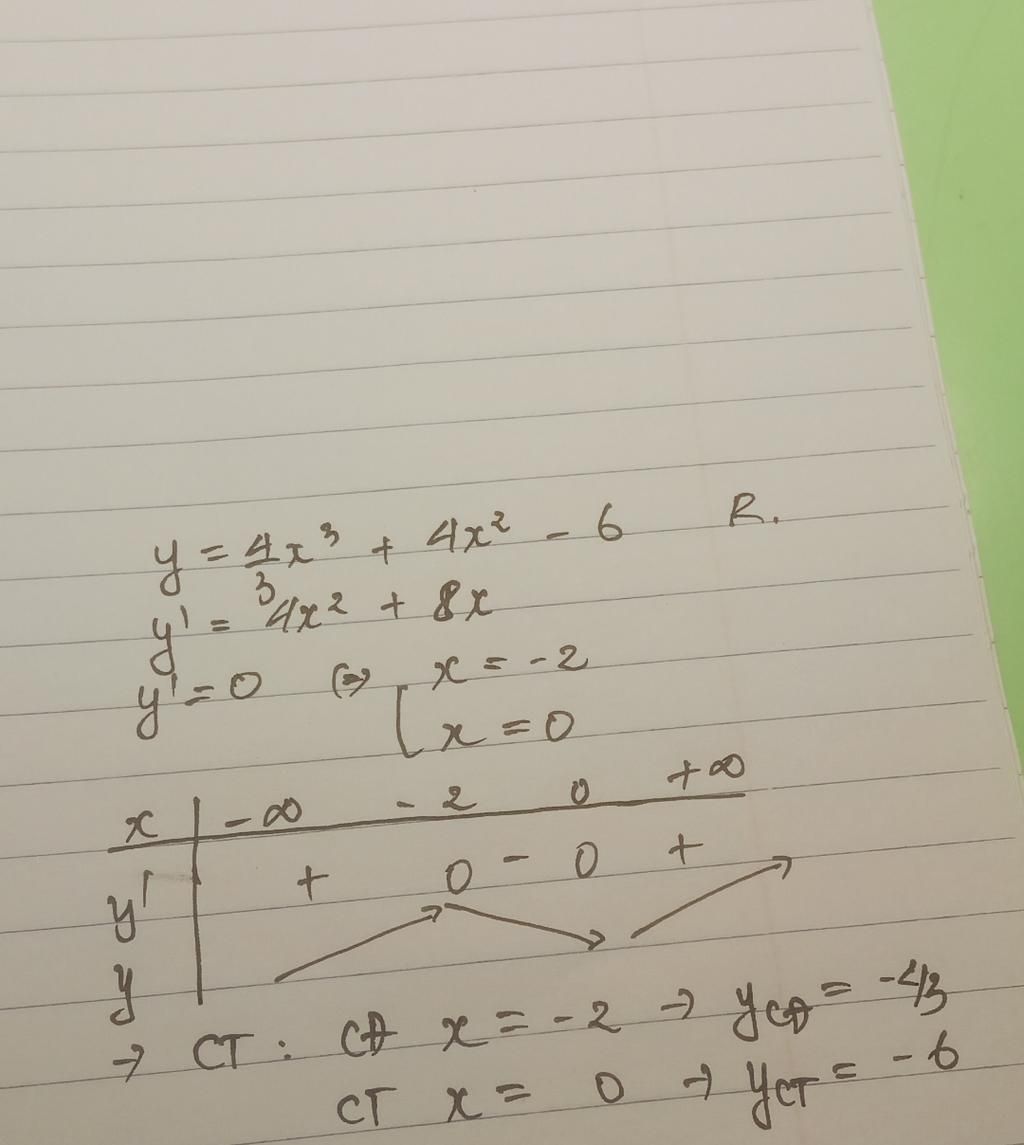 y = 4/3 x³ + 4x² - 6 R.
y' = 4x² + 8x
y' = 0 ⇔ [ x = -2
x = 0
x | -∞ -2 0 +∞
y' | + 0 - 0 +
y | ↗ ↘ ↗
→ CT : CĐ x = -2 → yCĐ = -2/3
CT x = 0 → yCT = -6